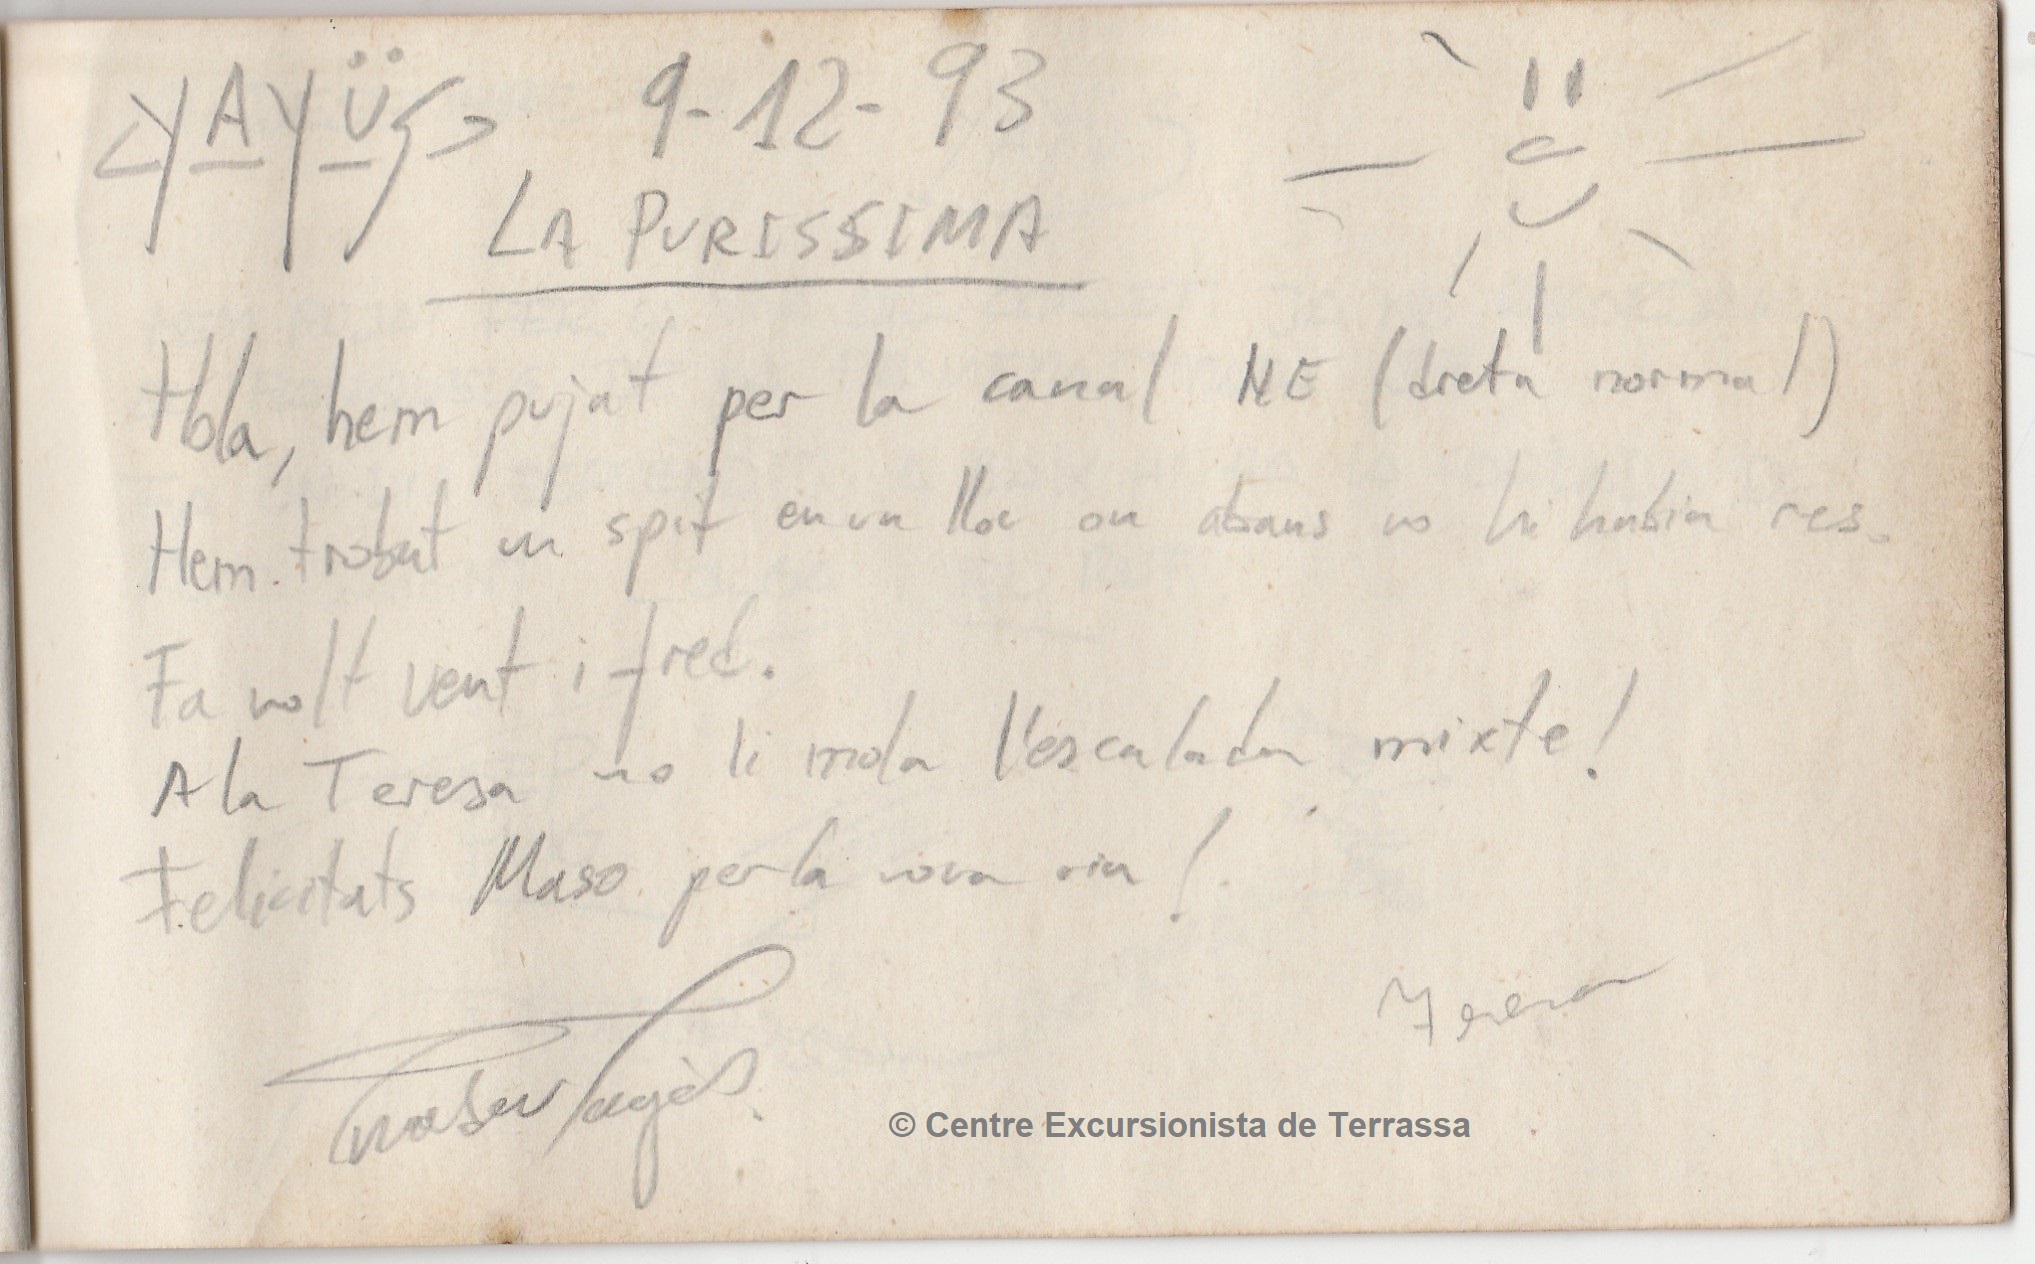 YAYÜS 9-12-93
LA PURISSIMA
Hola, hem pujat per la canal NE (dreta normal)
Hem trobat un spit en un lloc on abans no hi habia res.
Fa molt vent i fred.
A la Teresa no li mola l'escalada mixte!
Felicitats Maso per la nova via!
Teresa
© Centre Excursionista de Terrassa